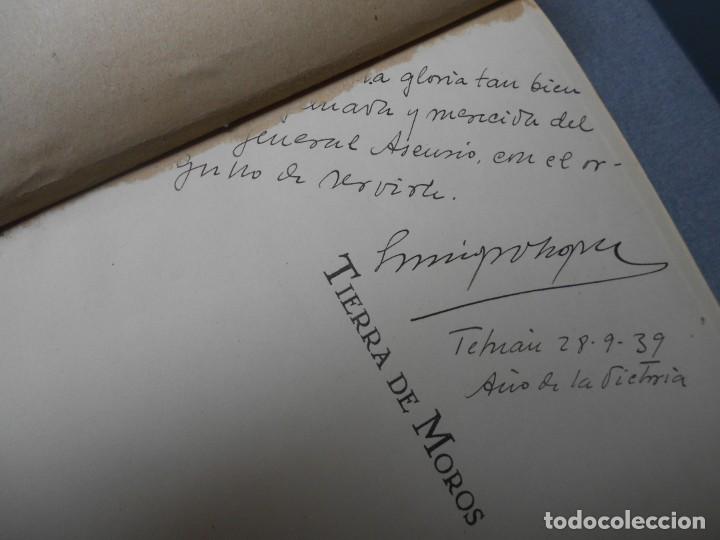 la gloria tan bien
ganada y merecida del
general Asensio, con el or-
gullo de servirle.
Tetuán 28-9-39
Año de la Victoria
TIERRA DE MOROS
todocoleccion.net